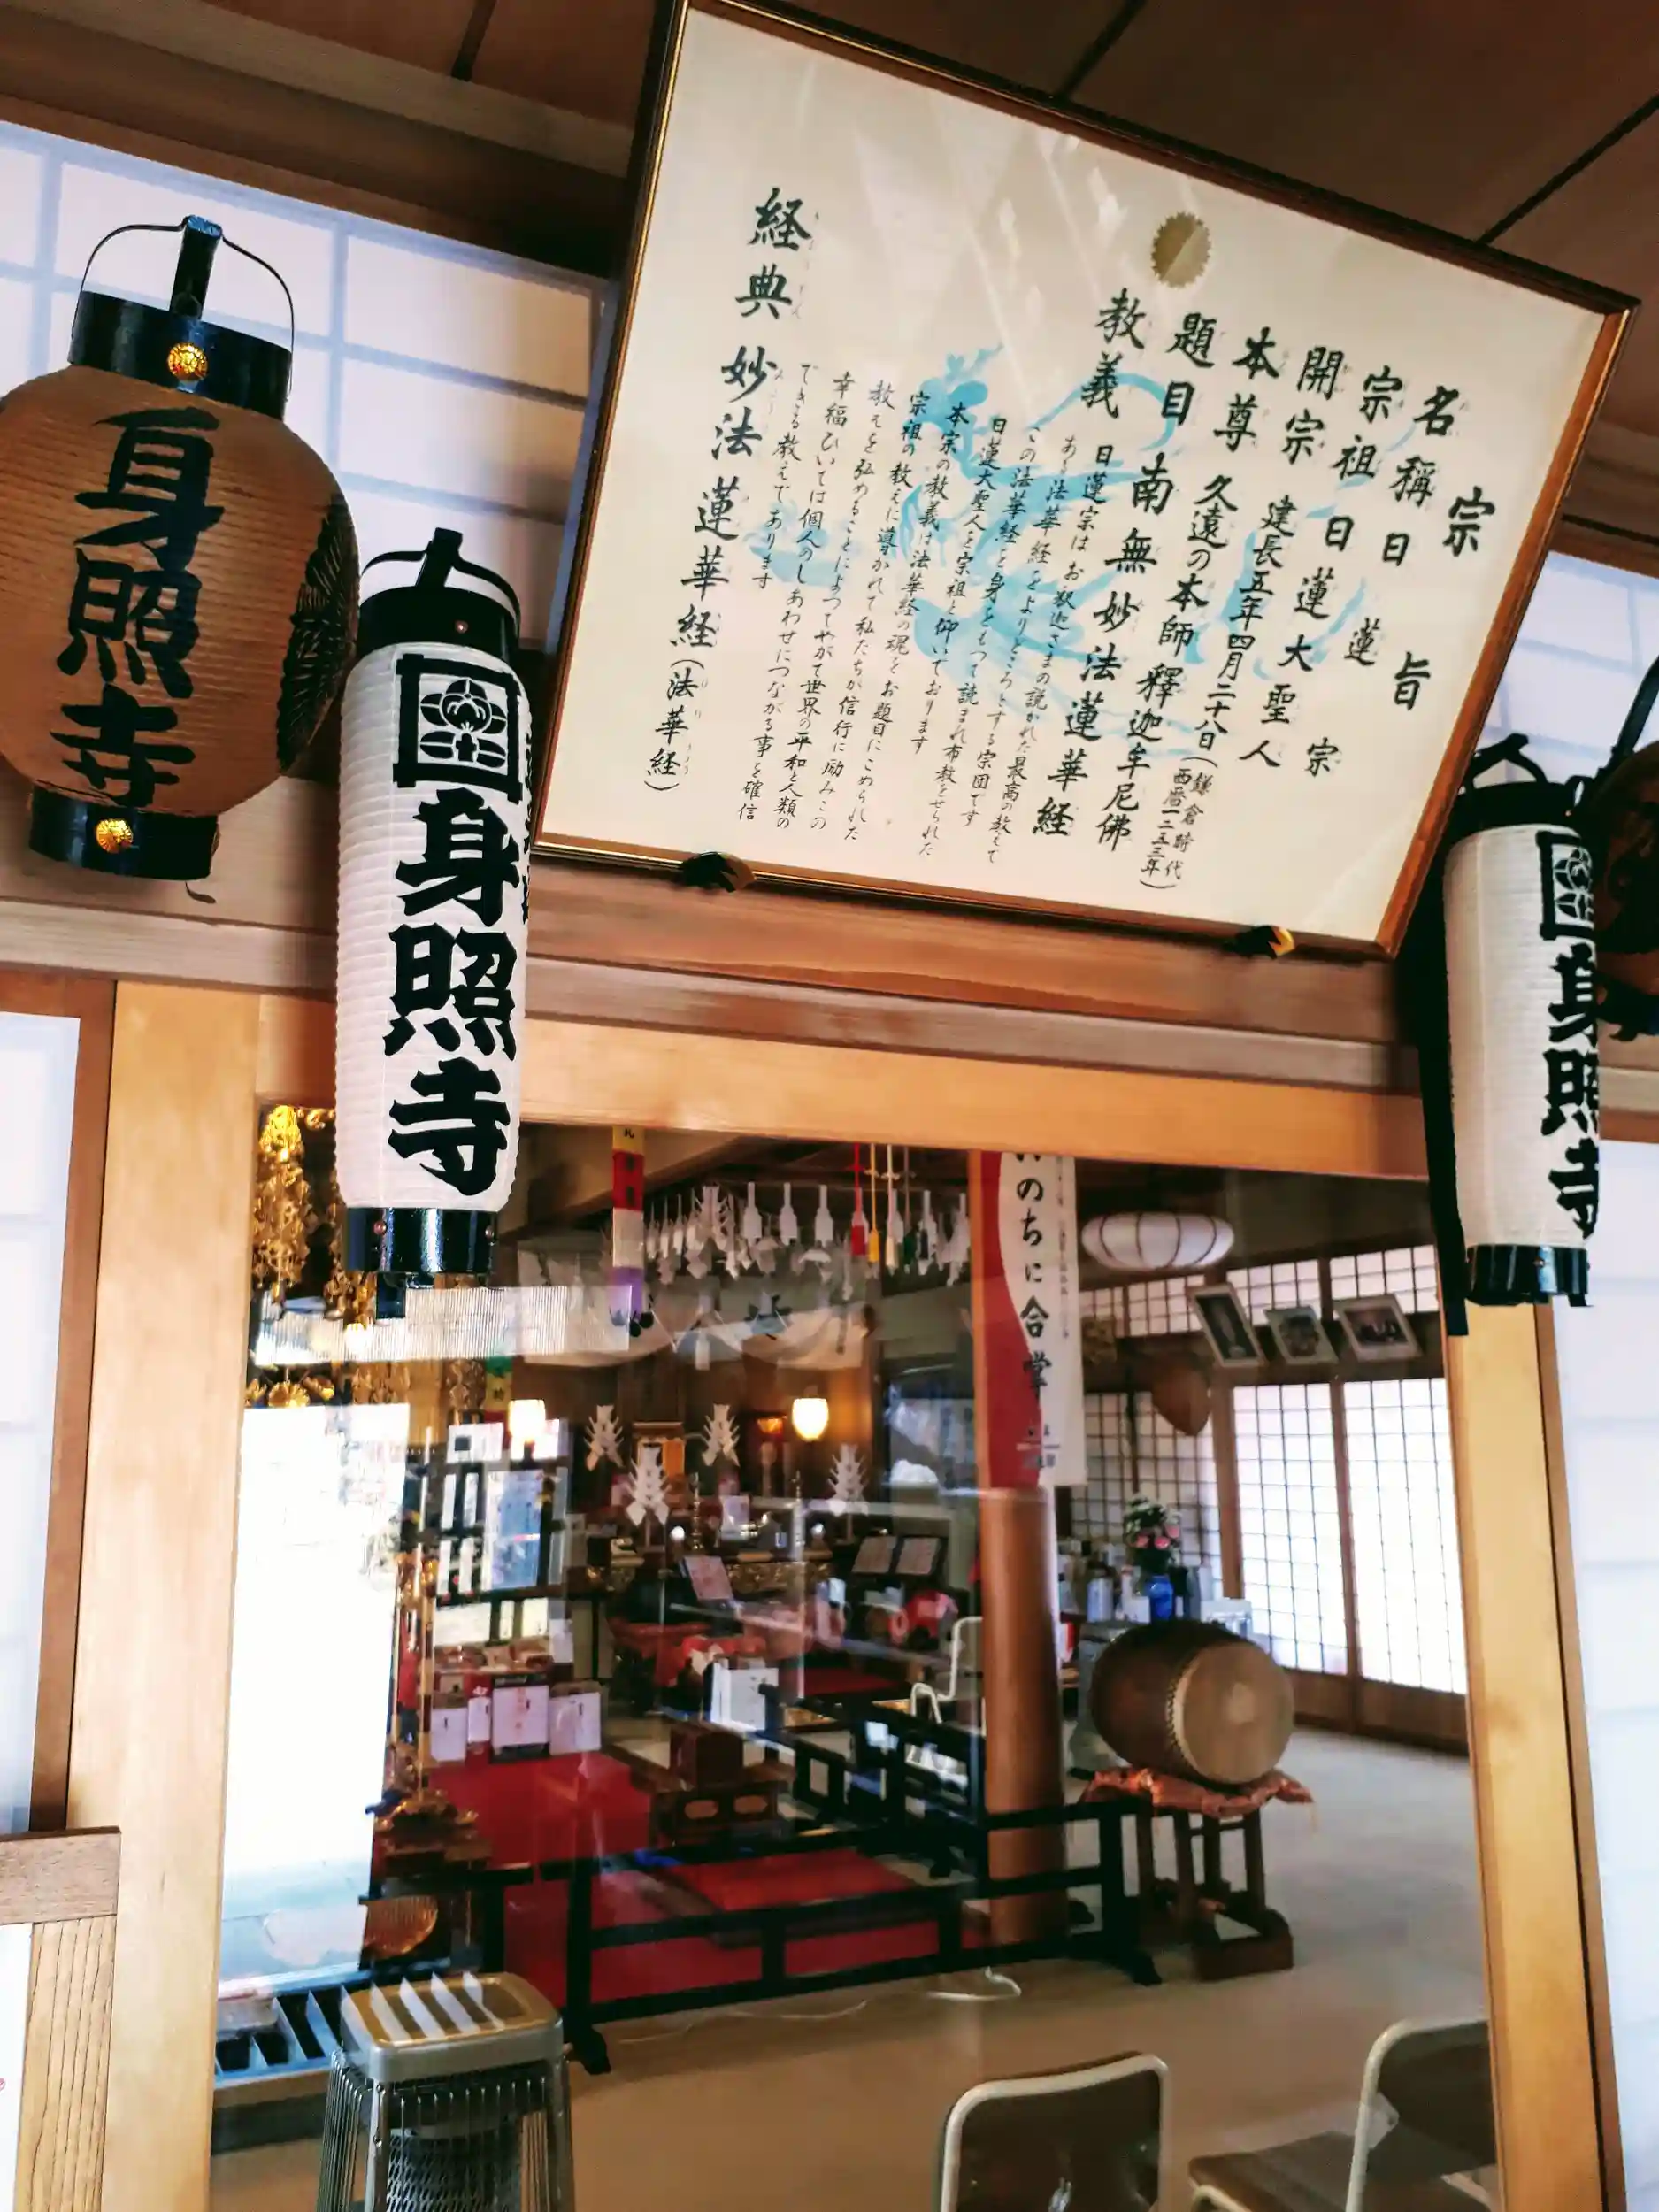 宗旨
名稱 日蓮宗
宗祖 日蓮大聖人
開宗 建長五年四月二十八日(鎌倉時代
西暦一二五三年)
本尊 久遠の本師釋迦牟尼佛
題目 南無妙法蓮華経
教義 日蓮宗はお釈迦さまの説かれた最高の教えで
ある法華経をよりどころとする宗団です
この法華経を身をもって読まれ布教をせられた
日蓮大聖人を宗祖と仰いでおります
本宗の教義は法華経の魂をお題目にこめられた
宗祖の教えに導かれて私たちが信行に励みこの
教えを弘めることによつてやがて世界の平和と人類の
幸福ひいては個人のしあわせにつながる事を確信
できる教えであります
経典 妙法蓮華経(法華経)
身照寺
身照寺
身照寺
いのちに合掌